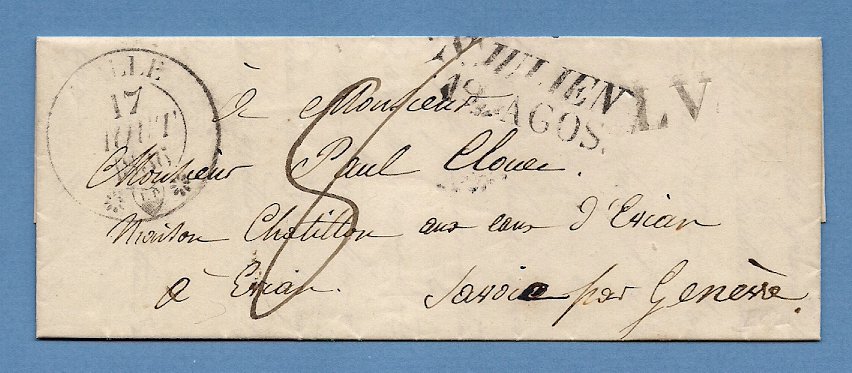 LLE
17
AOUT
JULIEN
19 AGOS.
LV
à Monsieur
Monsieur Paul Clouer.
maison Chatillon aux eaux d'Evian
à Evian. Savoie par Genève.